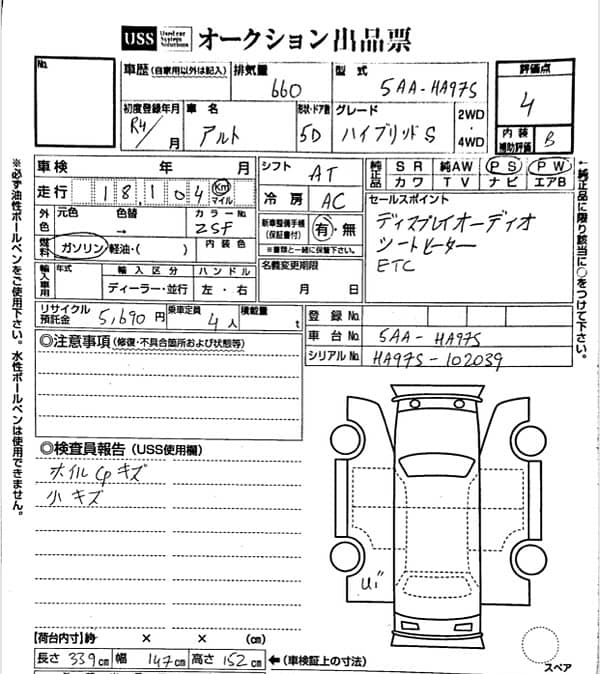 USS Used car System Solutions オークション出品票
No.
車歴 (自家用以外は記入) 排気量 660 型式 5AA-HA97S 評価点 4
初度登録年月 R4/ 月 車名 アルト 形状・ドア数 5D グレード ハイブリッドS 2WD・4WD
内装補助評価 B
車検 年 月 シフト AT 純正品 SR 純AW PS PW
走行 18,104 Km マイル 冷房 AC カワ TV ナビ エアB
外色 元色 色替 → カラーNo. ZSF 内装色
新車整備手帳 (保証書付) 有・無
※書類と一緒に保管下さい。
セールスポイント
ディスプレイオーディオ
シートヒーター
ETC
燃料 ガソリン・軽油・( )
輸入車用 年式 輸入区分 ディーラー・並行 ハンドル 左・右
名義変更期限 月 日
リサイクル預託金 5,690円 乗車定員 4人 積載量 t
登録No.
車台 5AA-HA97S
シリアルNo. HA97S-102039
◎注意事項 (修復・不具合箇所および状態等)
◎検査員報告 (USS使用欄)
ホイルCpキズ
小キズ
U
スペア
【荷台内寸】約 × × (cm)
長さ 339cm 幅 147cm 高さ 152cm ←(車検証上の寸法)
※必ず油性ボールペンをご使用下さい。水性ボールペンは使用できません。
←純正品に限り該当に○をつけて下さい。